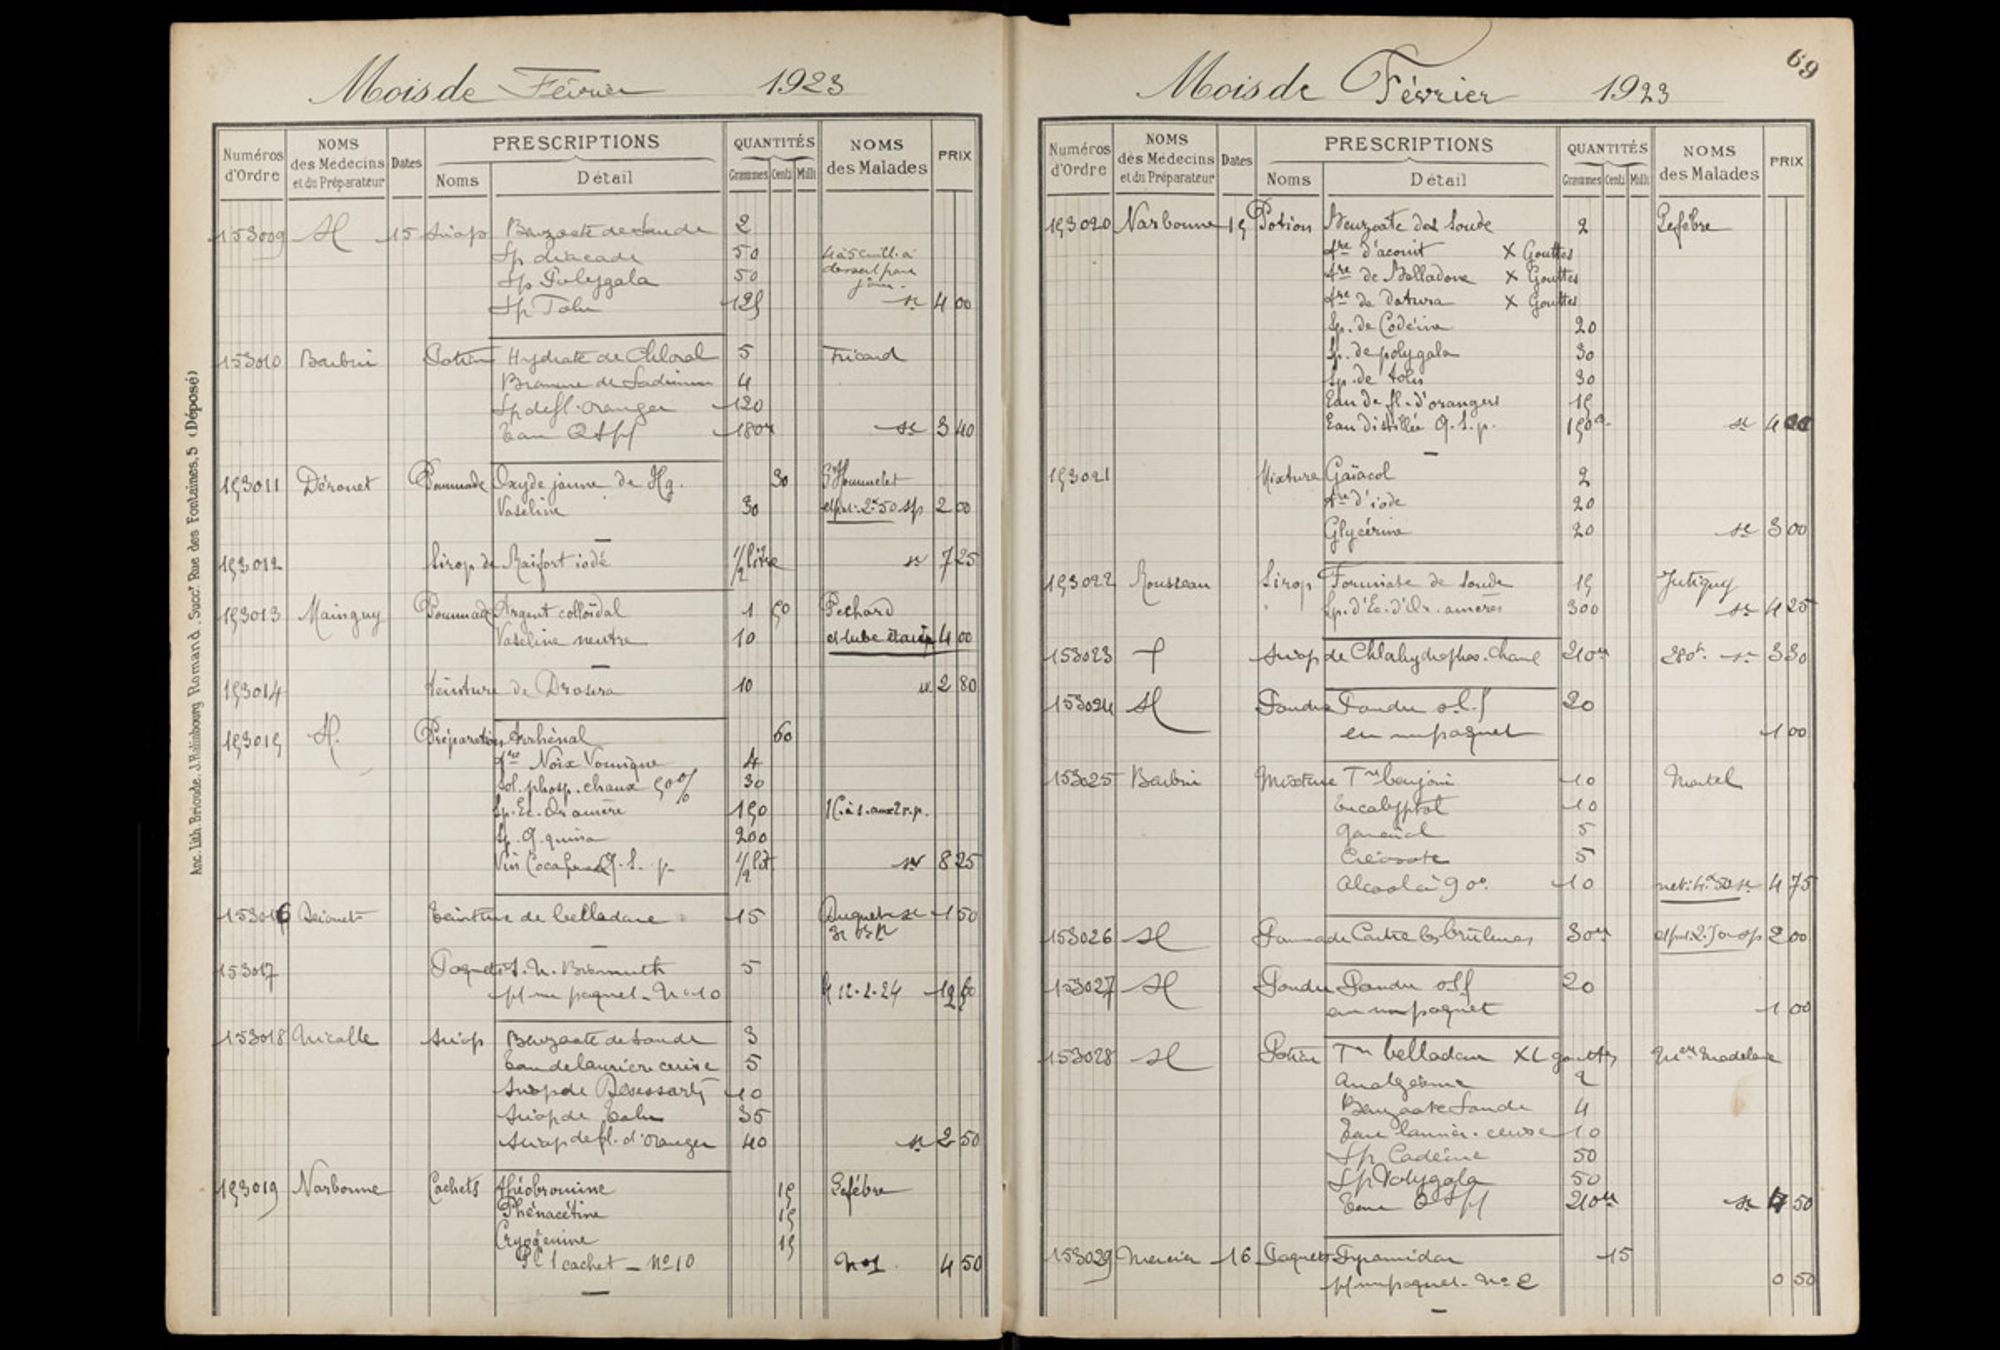 Mois de Février 1923
Numéros d'Ordre NOMS des Médecins et du Préparateur Dates PRESCRIPTIONS Noms Détail QUANTITÉS Grammes Centi Milli NOMS des Malades PRIX
153009 15 Sirop Benzoate de Soude 2
Sp diacode 50 4 à 5 cuill. à
Sp Polygala 50 dessert par jour.
Sp Tolu 125 4 00
153010 Barbini Potion Hydrate de Chloral 5 Tricard
Bromure de Sodium 4
Sp de fl. oranger 120
Eau QSpf 180 3 40
153011 Pommade Oxyde jaune de Hg. 30
Vaseline 30 2 00
153012 Sirop de Raifort iodé 1/2 litre 7 25
153013 Mainguy Pommade Argent colloïdal 1 50 Pechard
Vaseline neutre 10 et tube étain 4 00
153014 Teinture de Drosera 10 2 80
153015 H. Préparation Arrhénal 60
Tre Noix Vomique 4
Sol. phosp. chaux 50% 30
Sp. Ec. Or amère 150 1C. à s. aux 2 r.p.
Sp. Q. quina 200
Vin Coca Q. S. p. 1/2 lit 8 25
153016 Teinture de belladone 15 1 50
153017 Paquets S. N. Bismuth 5
pf un paquet - No 10 12-2-24
153018 Nicolle Sirop Benzoate de Soude 3
Eau de laurier cerise 5
Sirop de Desessartz 10
Sirop de Tolu 35
Sirop de fl. d'oranger 40 2 50
153019 Narbonne Cachets Théobromine 15 Lefébre
Phénacétine 15
Cryogénine 15
Pr 1 cachet - No 10 No1. 4 50
Anc. Lith. Brioude, J. Rolinbourg Romand, Succr. Rue des Fontaines, 5 (Déposé)
69
Mois de Février 1923
Numéros d'Ordre NOMS des Médecins et du Préparateur Dates PRESCRIPTIONS Noms Détail QUANTITÉS Grammes Centi Milli NOMS des Malades PRIX
153020 Narbonne 15 Potion Benzoate de Soude 2 Lefébre
Tre d'aconit X Gouttes
Tre de Belladone X Gouttes
Tre de Datura X Gouttes
Sp. de Codéine 20
Sp. de polygala 30
Sp. de tolu 30
Eau de fl. d'orangers 15
Eau distillée Q. S. p. 150 4
153021 Mixture Gaïacol 2
Tre d'iode 20
Glycérine 20 3 00
153022 Rousseau Sirop Formiate de Soude 15 Jutigny
Sp. d'Ec. d'Or. amères 300 4 25
153023 Sirop de Chlorhydrophos. chaux 210 3 30
153024 Poudre Poudre
en un paquet 20 1 00
153025 Barbini Mixture Tre benjoin 10 Martel
Eucalyptol 10
Gomenol 5
Créosote 5
Alcool à 90° 10 4 75
153026 Pommade Contre les brûlures 30 2 00
153027 Poudre Poudre 20
en un paquet 1 00
153028 Potion Tre belladone XL gouttes Madelaine
Analgésine 2
Benzoate Soude 4
Eau laurier-cerise 10
Sp Codéine 50
Sp Polygala 50
Eau QSpf 210 50
153029 Mercier 16 Paquets Pyramidon 15
pf un paquet - No 2 0 50